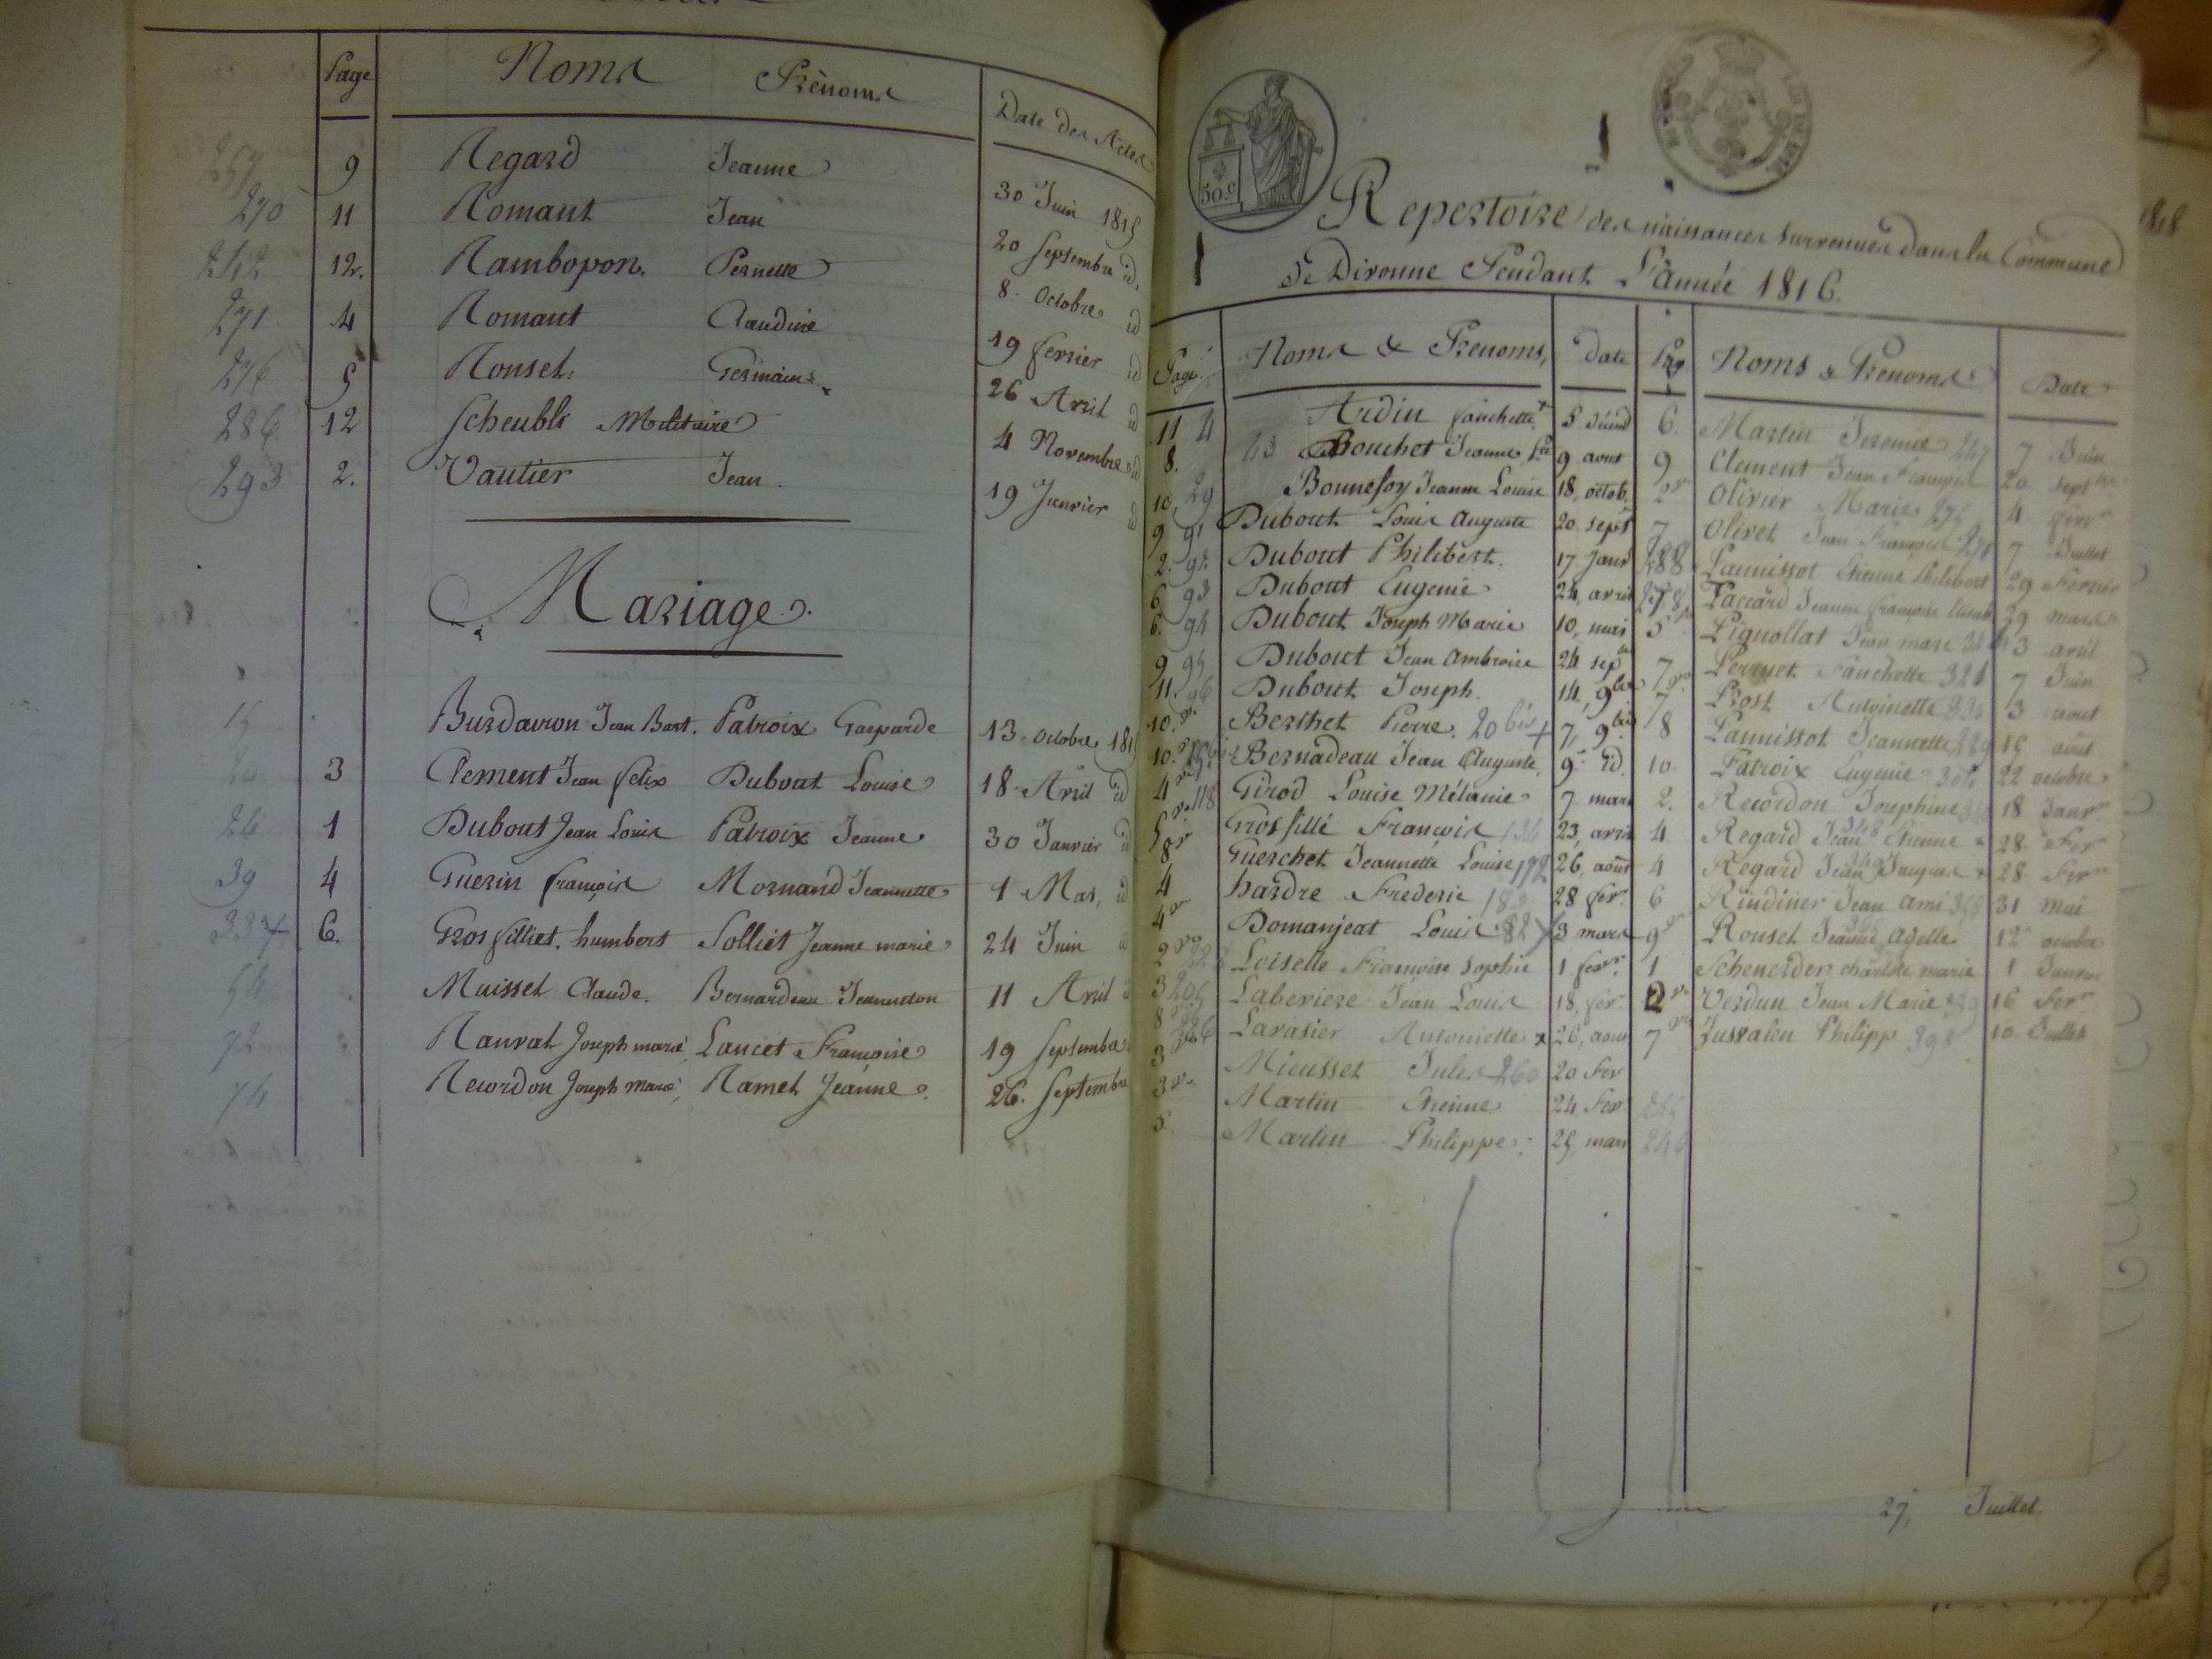 Page Noms Prénoms Date des Actes
257 9 Regard Jeanne 30 Juin 1815
270 11 Romant Jean 20 Septembre id.
12. Rambopon. Pernette 8. Octobre id
271 4 Romant Claudine 19 fevrier id
276 5 Rousel. Germain 26 Avril id
286 12 Scheubli Militaire 4 Novembre id
293 2. Vautier Jean. 19 Janvier id
Mariage.
15 Burdairon Jean Bart. Patroix Gasparde 13. octobre 1815
20 3 Clement Jean felix Dubout Louise 18. Avril id
26 1 Dubout Jean Louis Patroix Jeanne 30 Janvier id
39 4 Guerin françois Mornand Jeannette 1 Mai, id
6. Grosfilliet. humbert Solliet Jeanne marie 24 Juin
54 Muisset Claude. Bernardeau Jeanneton 11 Avril
72 Ranvat Joseph marie Lancet Françoise 19 Septembre
74 Recordon Joseph Marie, Ramel Jeanne. 26. Septembre
50.c
Repertoire des naissances survenues dans la Commune
de Divonne Pendant L'année 1816.
Page Noms & Prenoms, Date Pag Noms & Prenoms Date
11 4 Ardin fanchette + 5
8. 23 Bouchet Jeanne 9 aout
10, 29 Bonnefoy Jeanne Louise 18, octob.
9 91 Dubout Louis Auguste 20 sept
2. 92 Dubout Philibert. 17 janv
6 93 Dubout Eugenie 24, avril
6. 94 Dubout Joseph Marie 10, mai
9 95 Dubout Jean Ambroise 24 sep
11. 96 Dubout Joseph. 14, 9bre
10. Berthet Pierre. 20 bis + 7, 9bre
10. Bernadeau Jean Auguste. 9. id.
4 118 Girod Louise Mélanie 7 mars
5 Grosfillé François 134 23, avril
8 Guerchet Jeannette Louise 26, août
4 hardre Frederic 28 fer.
4 Domanjeat Louis 82 3 mars
2 Loiselle Françoise Sophie 1 fevr.
3 Laberiere Jean Louis 18, fer
8 226 Lavasier Antoinette x 26, aout
3 Mieusset Jules 260 20 Fer
3 Martin Etienne 24 Fer 245
5. Martin Philippe. 25, mars 246
6. Martin Jeremie 247 7 Juin
9 Clement Jean François 20 sept
2 Olivier Marie 4 fevr
7 Olivet Jean François 7 Juillet
288 Pannissot Etienne Philibert 29 Fevrier
Paccard Jeanne françoise 29 mars
5 Pignollat Jean marc 13 avril
7 Perruet Fanchette 321 7 Juin
7 Prost Antoinette 3 aout
8 Pannissot Jeannette 15 août
10. Patroix Eugenie 22 octobre
2. Recordon Josephine 18 Janv
4 Regard Jean Etienne x 28 Fer
4 Regard Jean Jacques x 28 Fer
6 Rindiner Jean Ami 31 Mai
9 Rousel Jeanne Adelle 12 octobre
1 Schenerder charlotte marie 1 Janvier
2 Verdun Jean Marie 16 Fer
7 Jusvalen Philipp 398 10. Juillet
27, Juillet.